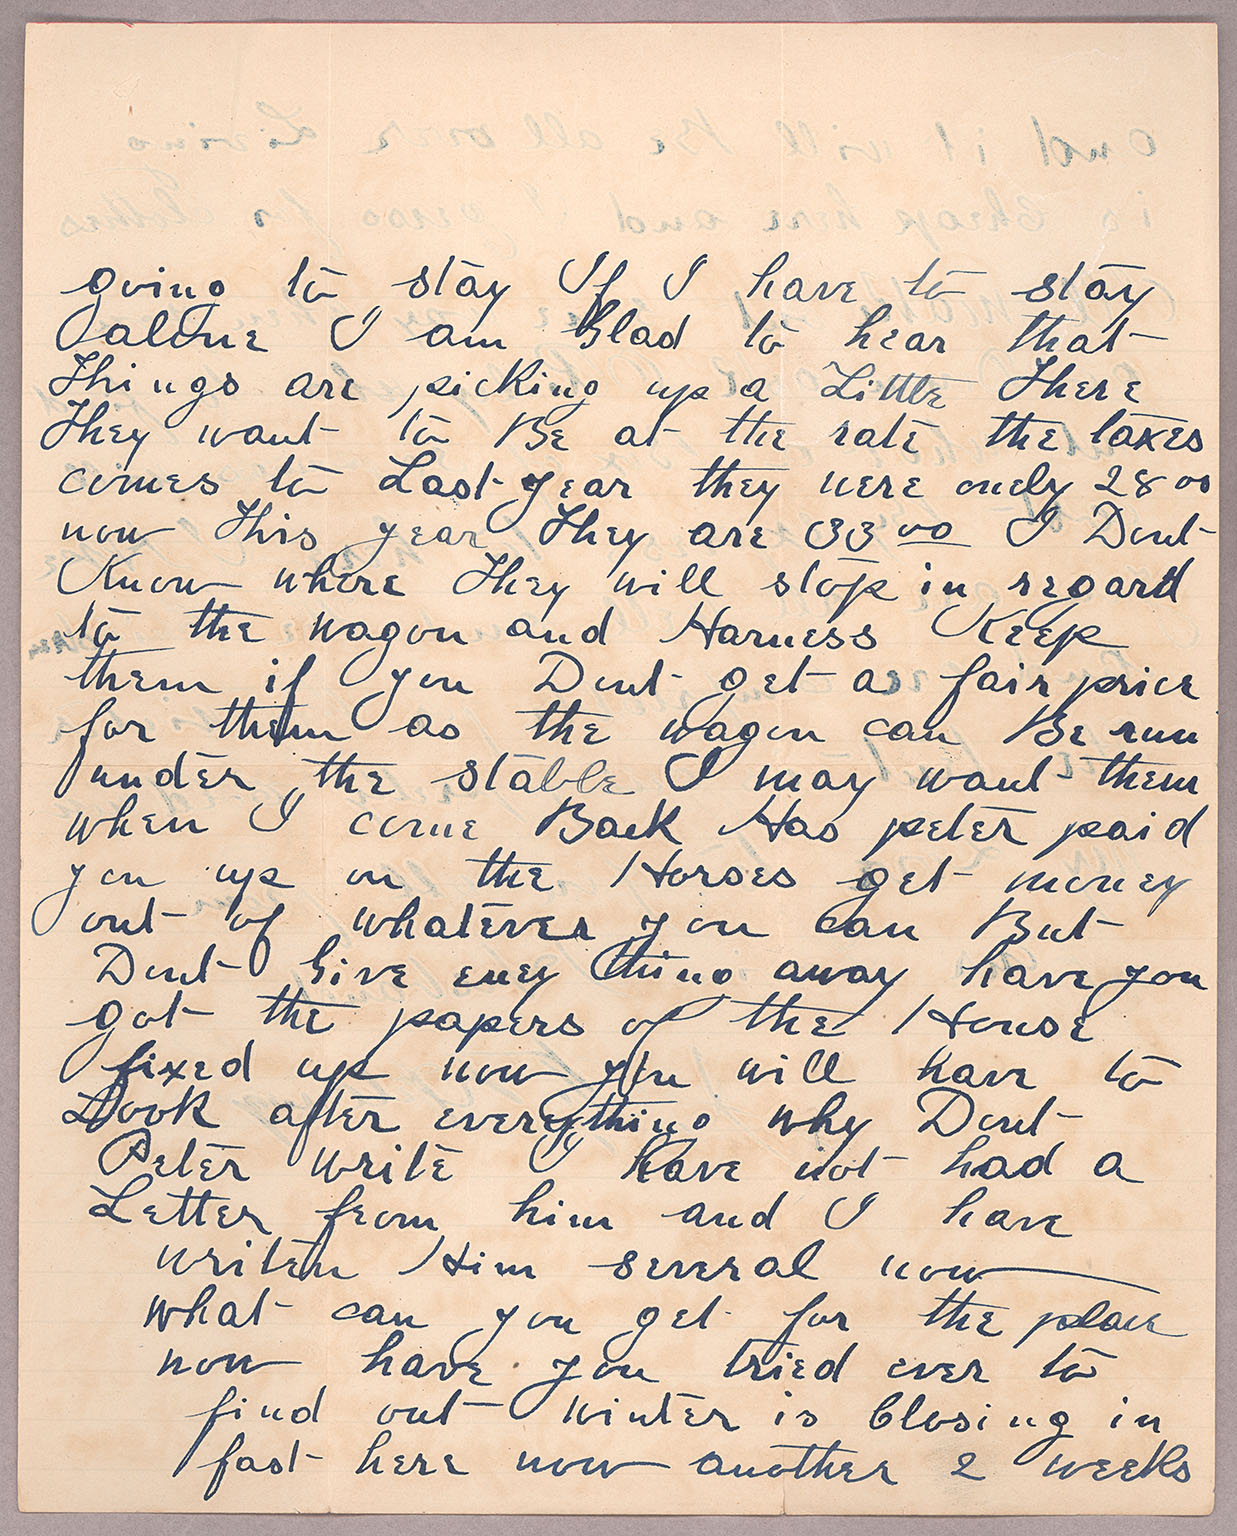 going to stay If I have to stay
alone I am Glad to hear that
Things are picking up a Little There
They want to Be at the rate the taxes
comes to Last year they were onely 28 00
now This year They are 33 00 I Dont
Know where They will stop in regard
to the wagon and Harness Keep
them if you Dont get a fair price
for them as the wagon can Be run
under the stable I may want them
when I come Back Has peter paid
you up on the Horses get money
out of whatever you can But
Dont Give eney thing away have you
got the papers of the House
fixed up now you will have to
Look after everything why Dont
Peter write I have not had a
Letter from him and I have
writen Him several now
what can you get for the place
now have you tried ever to
find out winter is Closing in
fast here now another 2 weeks